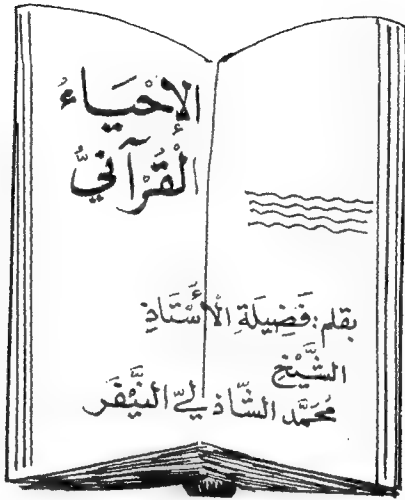 الإِحْيَاءُ
الْقُرْآنيُّ
بقلم: فَضِيلَةِ الأُسْتَاذِ
الشَّيْخِ
مُحَمَّد الشَّاذليّ النَّيْفَر